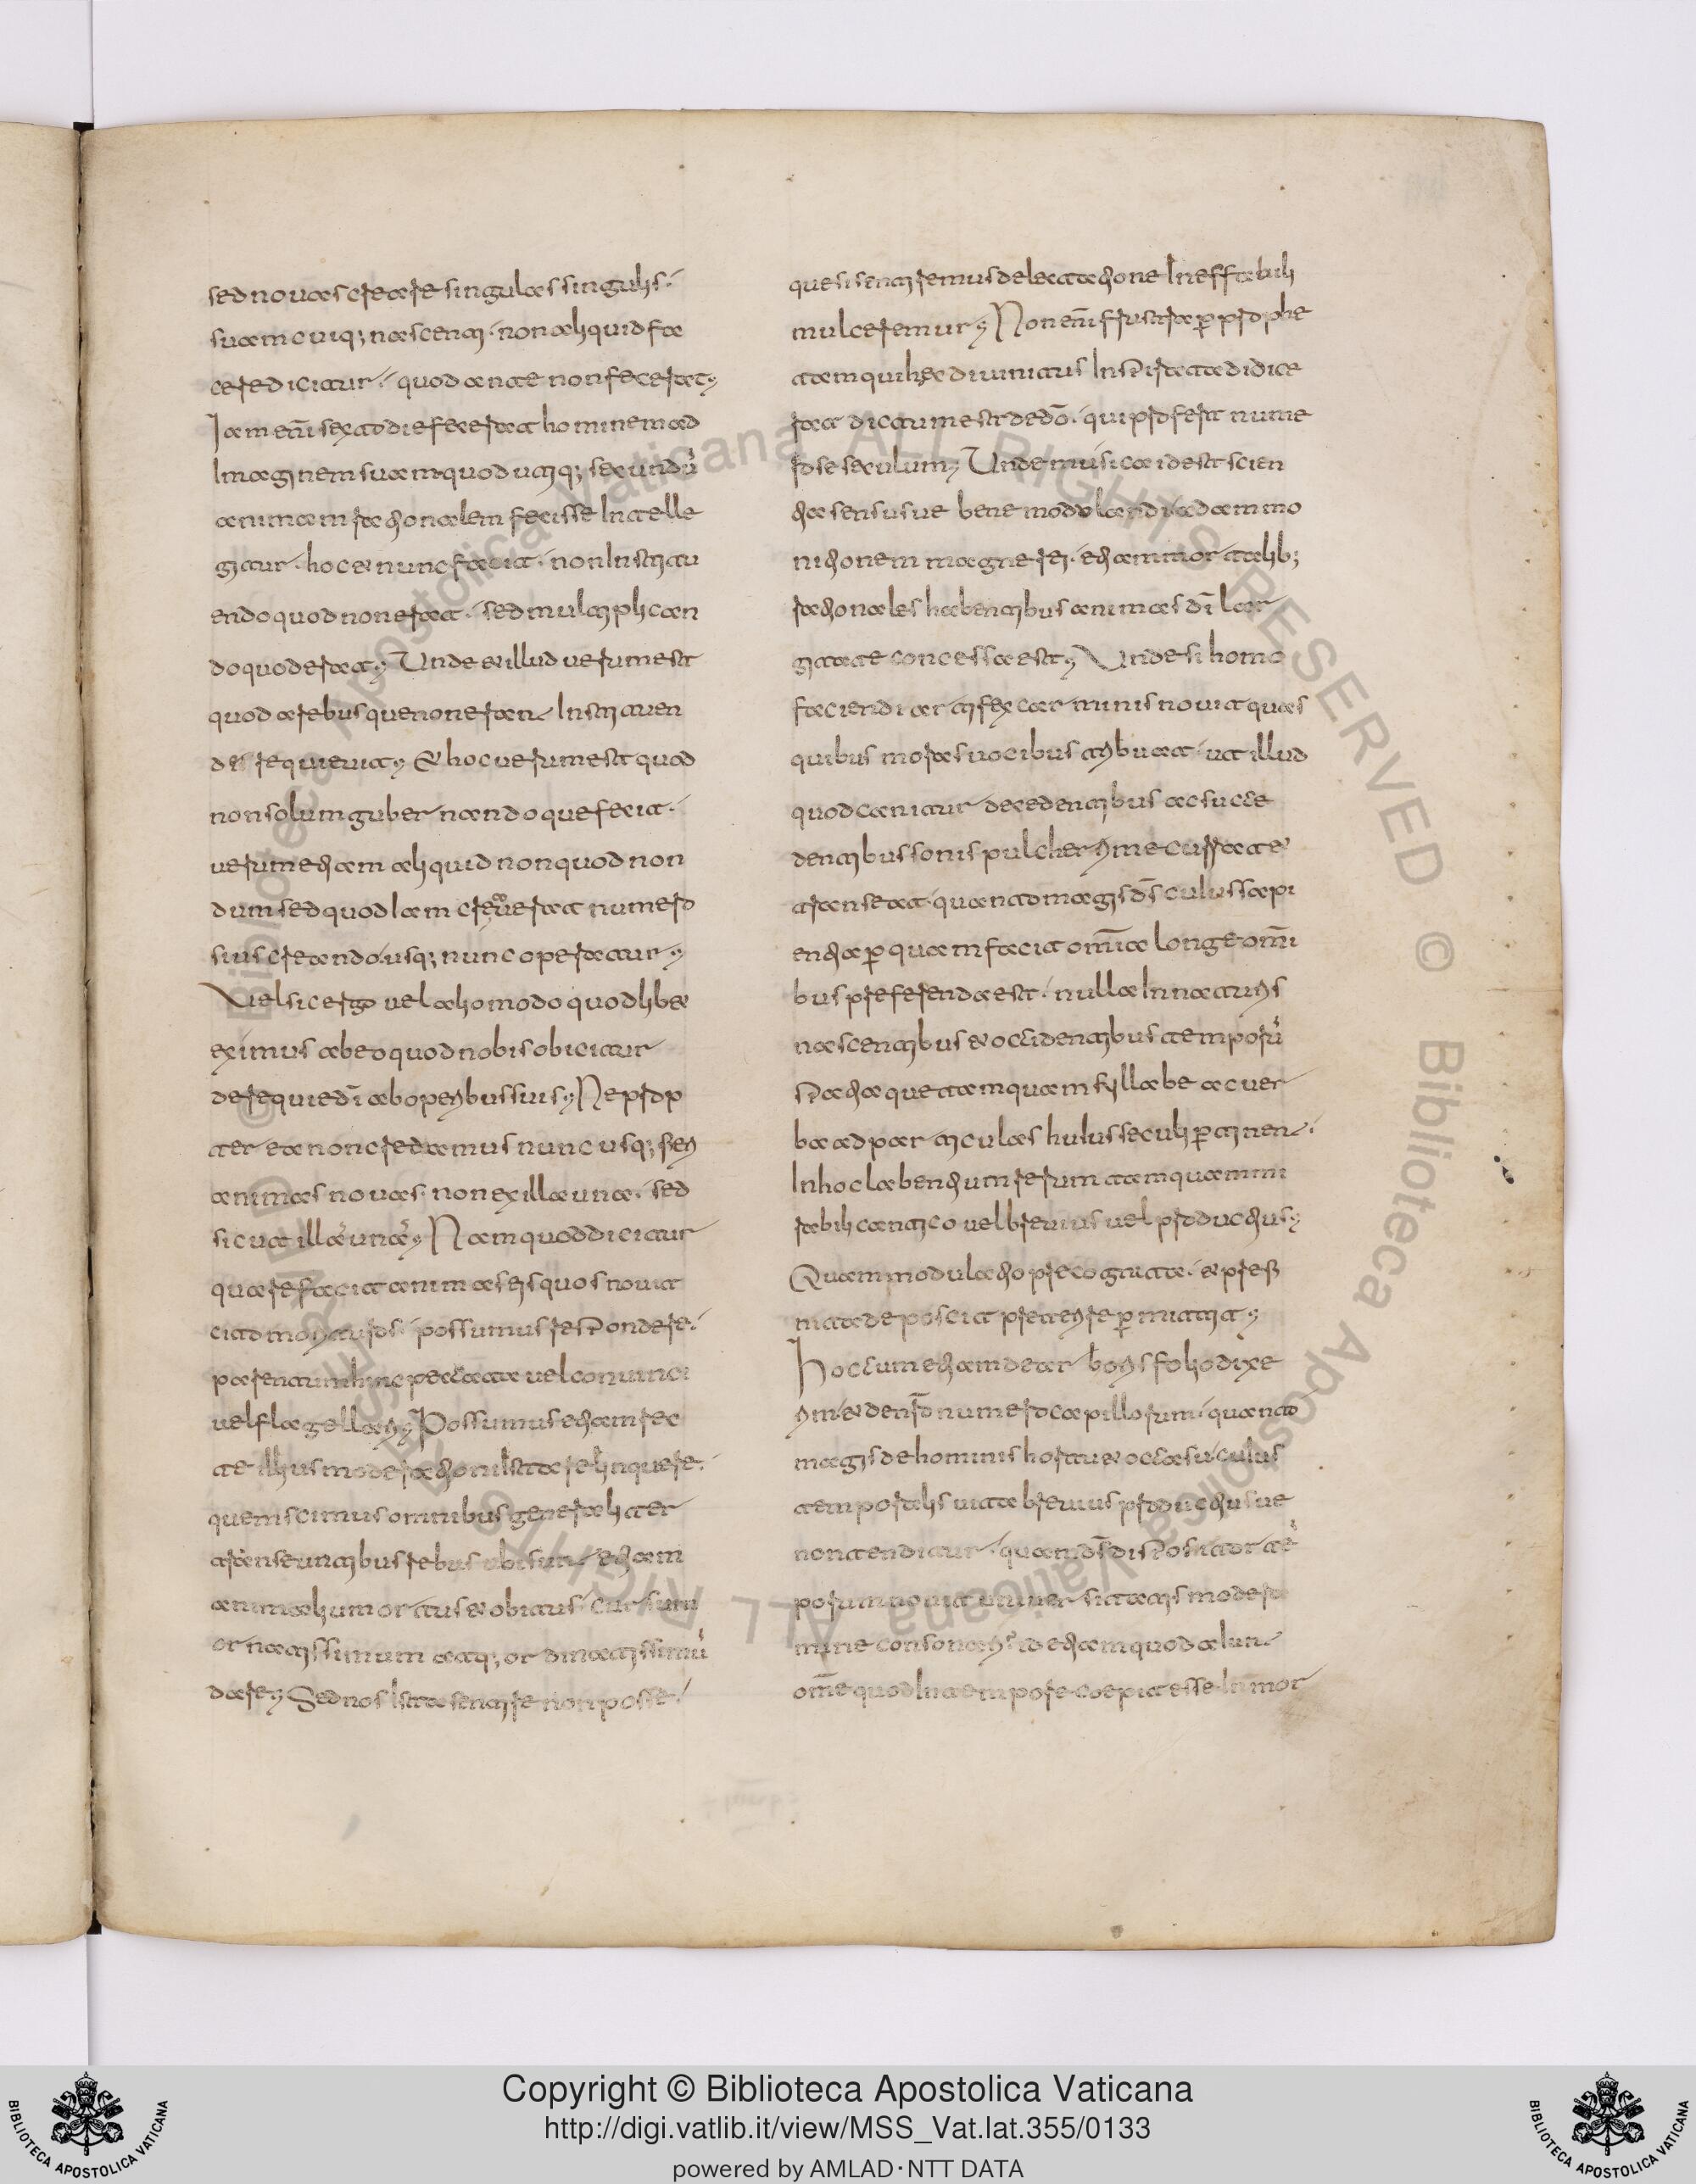 sed novas creare singulas singulis·
suam cuiq; nascenti· non aliquid fa
cere dicitur· quod ante non fecerat;
Iam enī sexto die fecerat hominem ad
Imaginem suam· quod utiq; secundū
animam rationalem fecisse Intelle
gitur· hoc & nunc facit· non Institu
endo quod non erat· sed multiplican
do quod erat; Unde & illud verum est
quod a rebus que non eran Instituen
dis requievit; & hoc verum est quod
non solum gubernando que fecit·
verum etiam aliquid non quod non
dum sed quod Iam creaverat numero
sius creando usq; nunc operatur;
Vel sic ergo vel alio modo quodlib&
eximus ab eo quod nobis obicitur
de requie dī ab operibus suis; Ne prop
ter ea non credamus nunc usq; fieri
animas novas· non ex illa una· sed
sicut illā unā; Nam quod dicitur
quare facit animas eis quos novit
cito morituros· possumus respondere·
parentum hinc peccata vel convinci
vel flagellari; Possumus etiam rec
te illius moderationi Ista relinquere·
quem scimus omnibus generaliter
transeuntibus rebus ubi sun etiam
animalium ortus & obitus· cursum
ornatissimum atq; ordinatissimū
dare; Sed nos Ista sentire non posse·
que si sentiremus delectatione Ineffabili
mulceremur; Non enī frustra ꝑ prophe
tam qui hęc divinitus Inspirata didice
rat dictum est de dō· qui profert nume
rose seculum; Unde musica id est scien
tia sensusve bene modulandi ad ammo
nitionem magne rei· etiam mortalib;
rationales habentibus animas dī lar
gitate concessa est; Unde si homo
faciendi artifex carminis novit quas
quibus moras vocibus tribuat· ut illud
quod canitur decedentibus ac succe
dentibus sonis pulcherrime currat &
transeat· quanto magis dš cuius sapi
entia ꝑ quam facit omīa longe omī
bus preferenda est· nulla In naturis
nascentibus & occidentibus temporū
spatia que tamquam syllabe ac ver
ba ad particulas huius seculi ꝑtinen·
In hoc labentium rerum tamquam mi
rabili cantico vel brevius vel productius;
Quam modulatio precognita· & prefi
nita deposcit preterire ꝑmittit;
Hoc cum etiam de arboris folio dixe
rim· & de nr̄o numero capillorum· quanto
magis de hominis hortu & occasu· cuius
temporalis vita brevius productiusve
non tenditur· quam dš dispositor tē
porum novit universitatis modera
mine consonari· id etiam quod aiun
omē quod In tempore coepit esse· Inmor
Copyright © Biblioteca Apostolica Vaticana
http://digi.vatlib.it/view/MSS_Vat.lat.355/0133
powered by AMLAD·NTT DATA
BIBLIOTECA APOSTOLICA VATICANA
BIBLIOTECA APOSTOLICA VATICANA